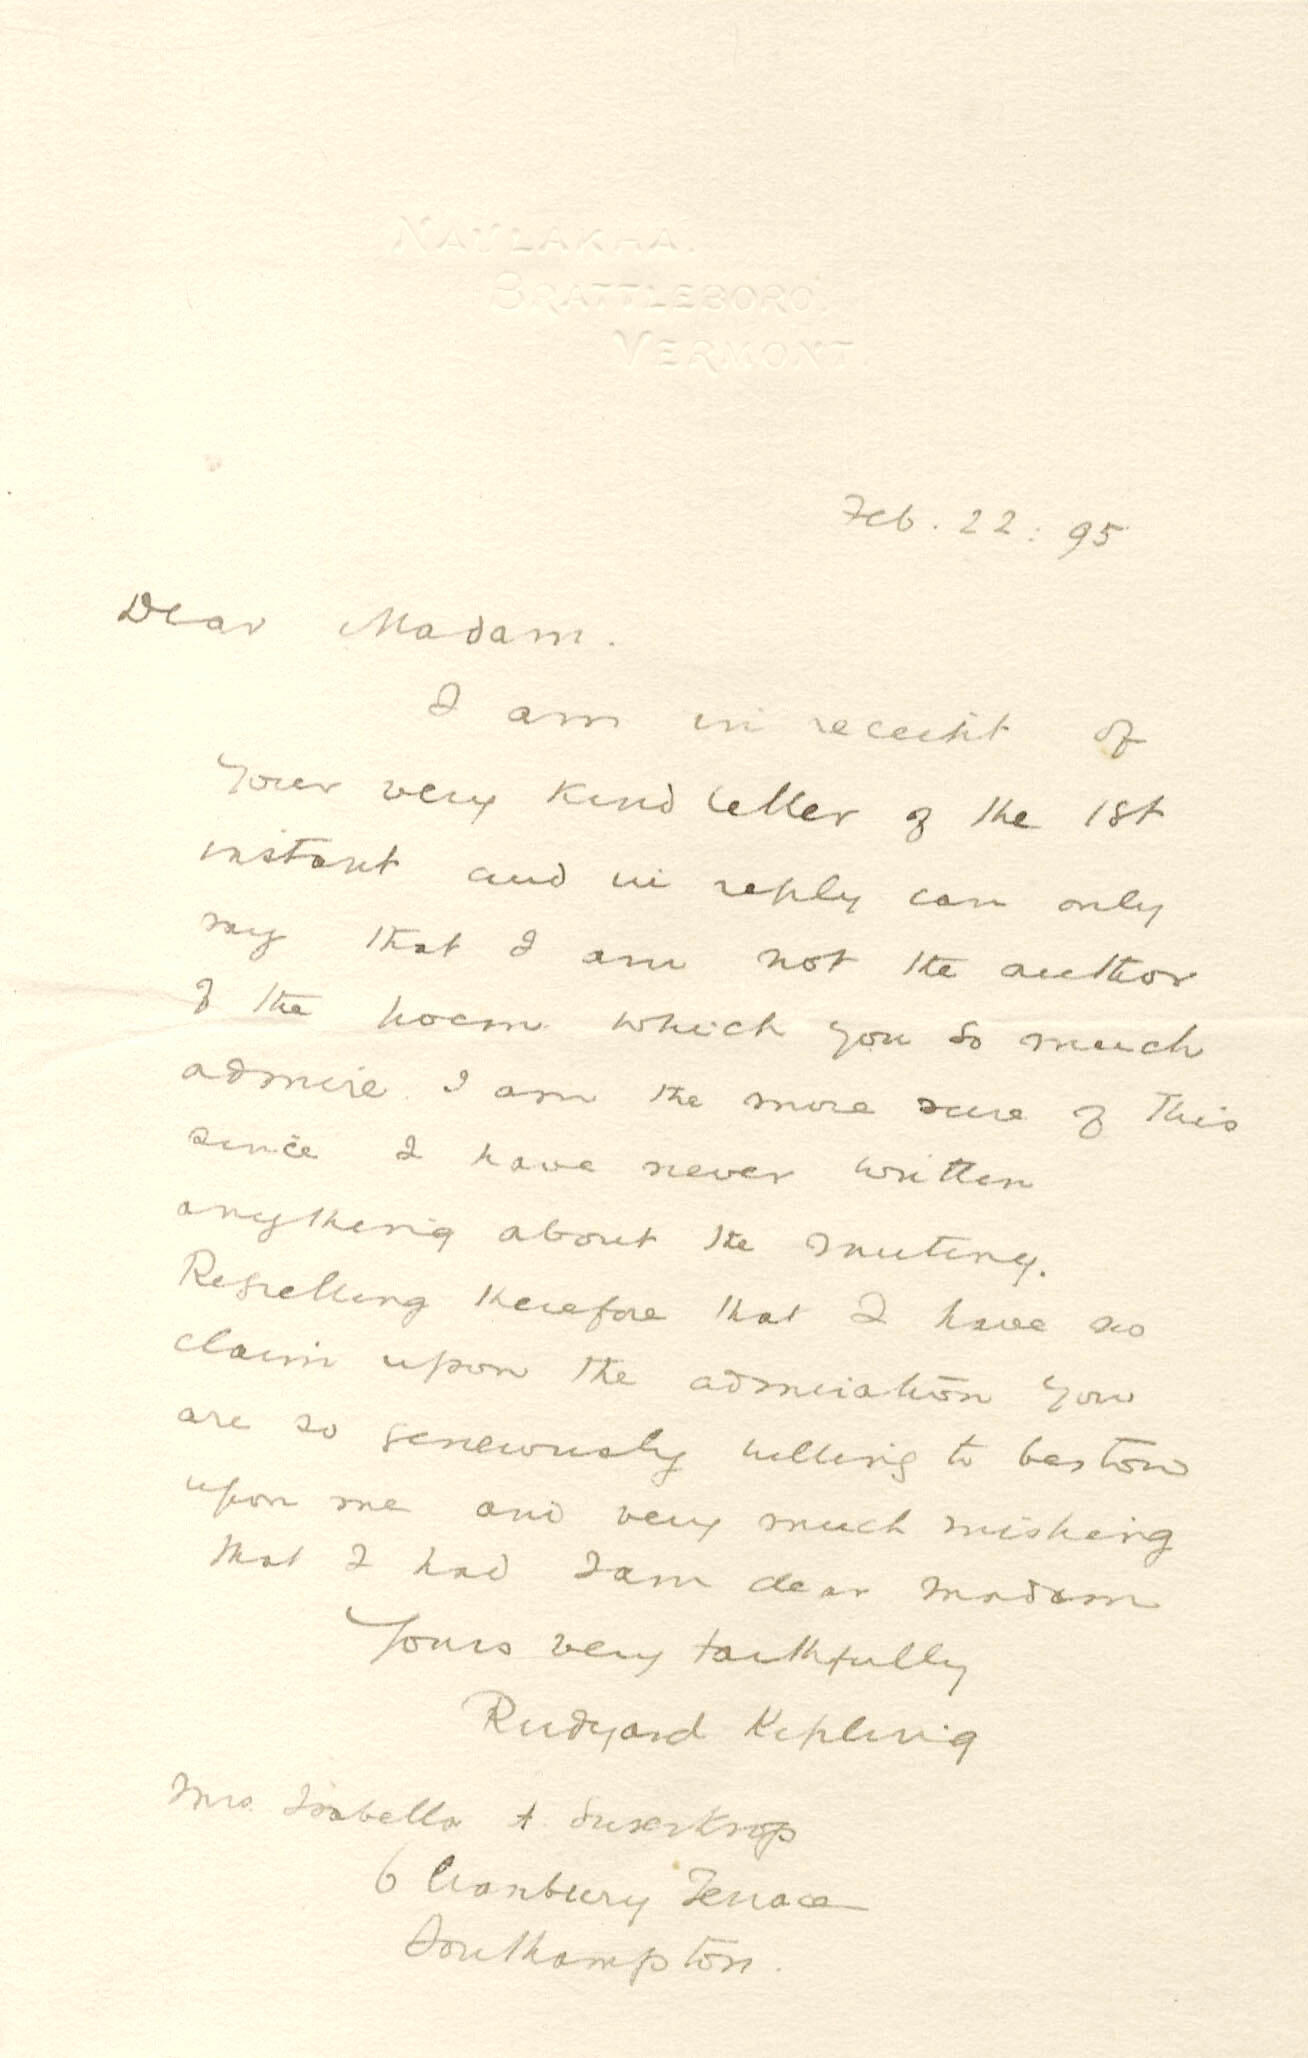 NAULAKHA.
BRATTLEBORO.
VERMONT.
Feb. 22: 95
Dear Madam.
I am in receipt of
your very kind letter of the 1st
instant and in reply can only
say that I am not the author
of the poem which you so much
admire. I am the more sure of this
since I have never written
anything about the mutiny.
Regretting therefore that I have no
claim upon the admiration you
are so generously willing to bestow
upon me and very much wishing
that I had I am dear madam
Yours very faithfully
Rudyard Kipling
Mrs. Isabella A.
6 Cranbury Terrace
Southampton.